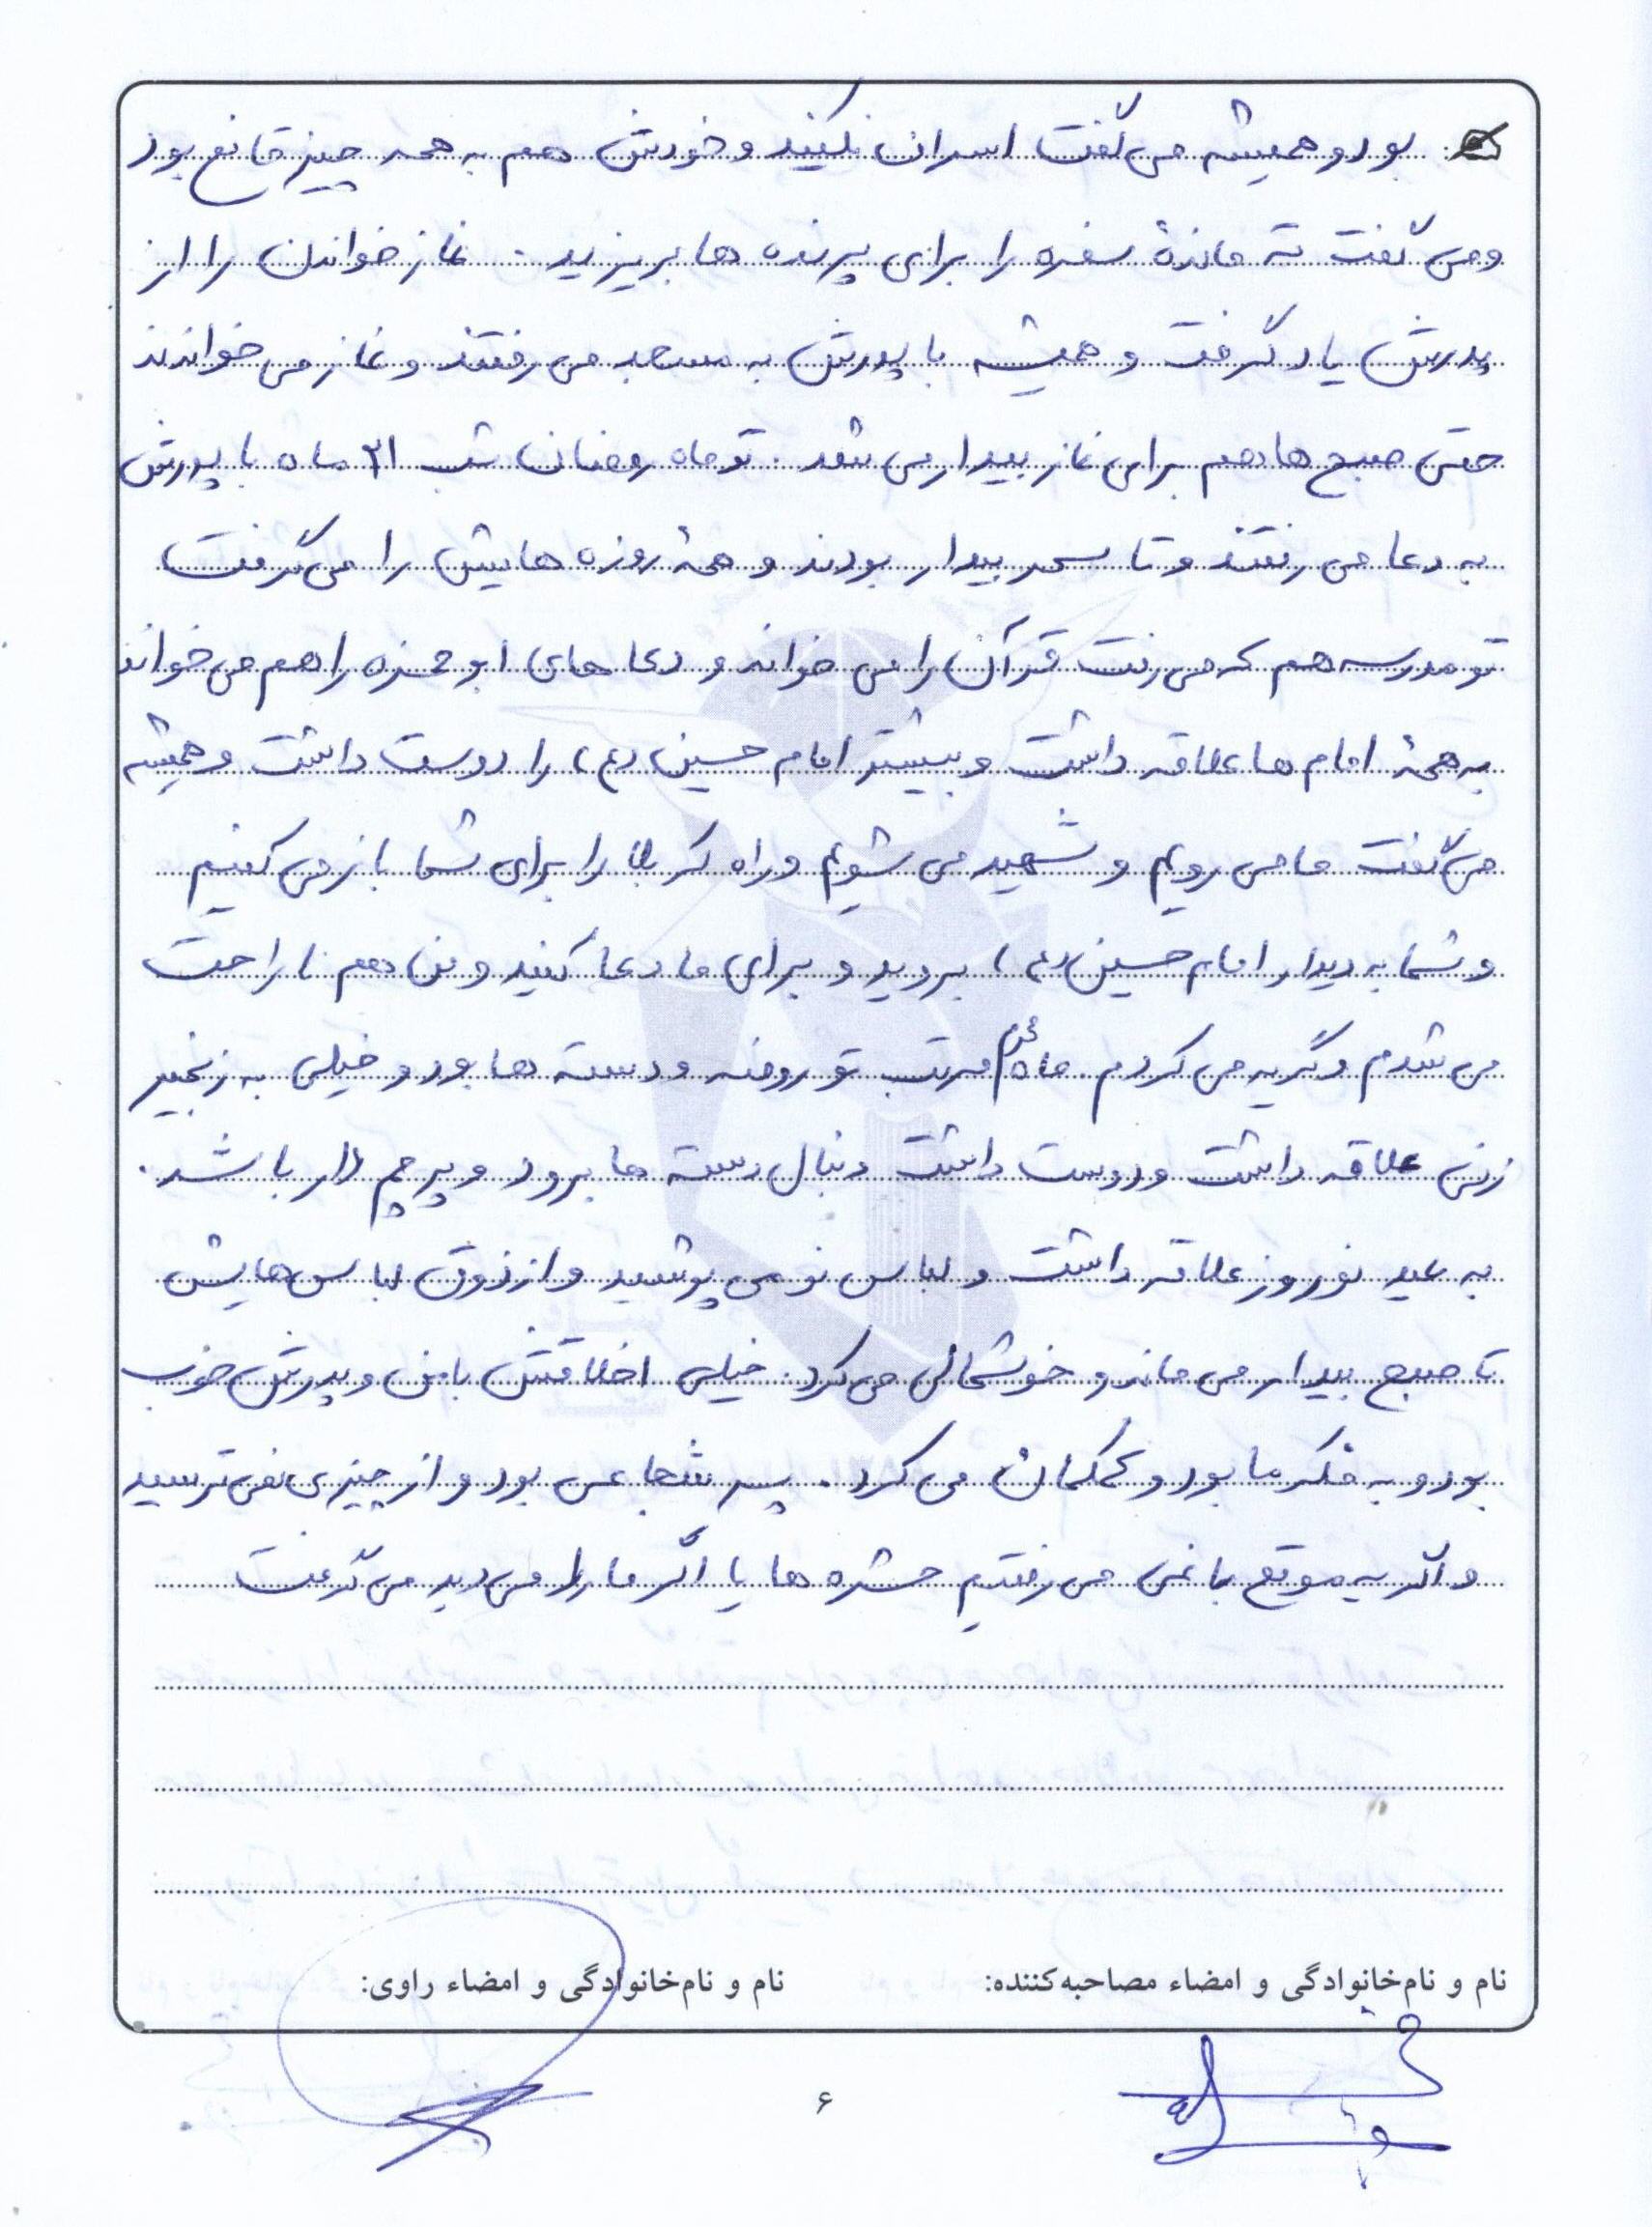 بود و همیشه می گفت اسراف نکنید و خودش هم به همه چیز قانع بود
و می گفت ته ماندهٔ سفره را برای پرنده ها بریزید. نماز خواندن را از
پدرش یاد گرفت و همیشه با پدرش به مسجد می رفتند و نماز می خواندند
حتی صبح ها هم برای نماز بیدار می شد. تو ماه رمضان شب ۲۱ ماه با پدرش
به دعا می رفتند و تا سحر بیدار بودند و همهٔ روزه هایش را می گرفت
تو مدرسه هم که می رفت قرآن را می خواند و دعا های ابوحمزه را هم می خواند
به همهٔ امام ها علاقه داشت و بیشتر امام حسین (ع) را دوست داشت و همیشه
می گفت ما می رویم و شهید می شویم و راه کربلا را برای شما باز می کنیم
و شما به دیدار امام حسین (ع) بروید و برای ما دعا کنید و من هم ناراحت
می شدم و گریه می کردم. ماه محرم مرتب تو روضه و دسته ها بود و خیلی به زنجیر
زنی علاقه داشت و دوست داشت دنبال دسته ها برود و پرچم دار باشد.
به عید نوروز علاقه داشت و لباس نو می پوشید و از ذوق لباس هایش
تا صبح بیدار می ماند و خوشحالی می کرد. خیلی اخلاقش با من و پدرش خوب
بود و به فکر ما بود و کمکمان می کرد. پسر شجاعی بود و از چیزی نمی ترسید
و اگر یه موقع باغی می رفتیم حشره ها یا اگر مار را می دید می گرفت
نام و نام‌خانوادگی و امضاء مصاحبه‌کننده: نام و نام‌خانوادگی و امضاء راوی:
۶